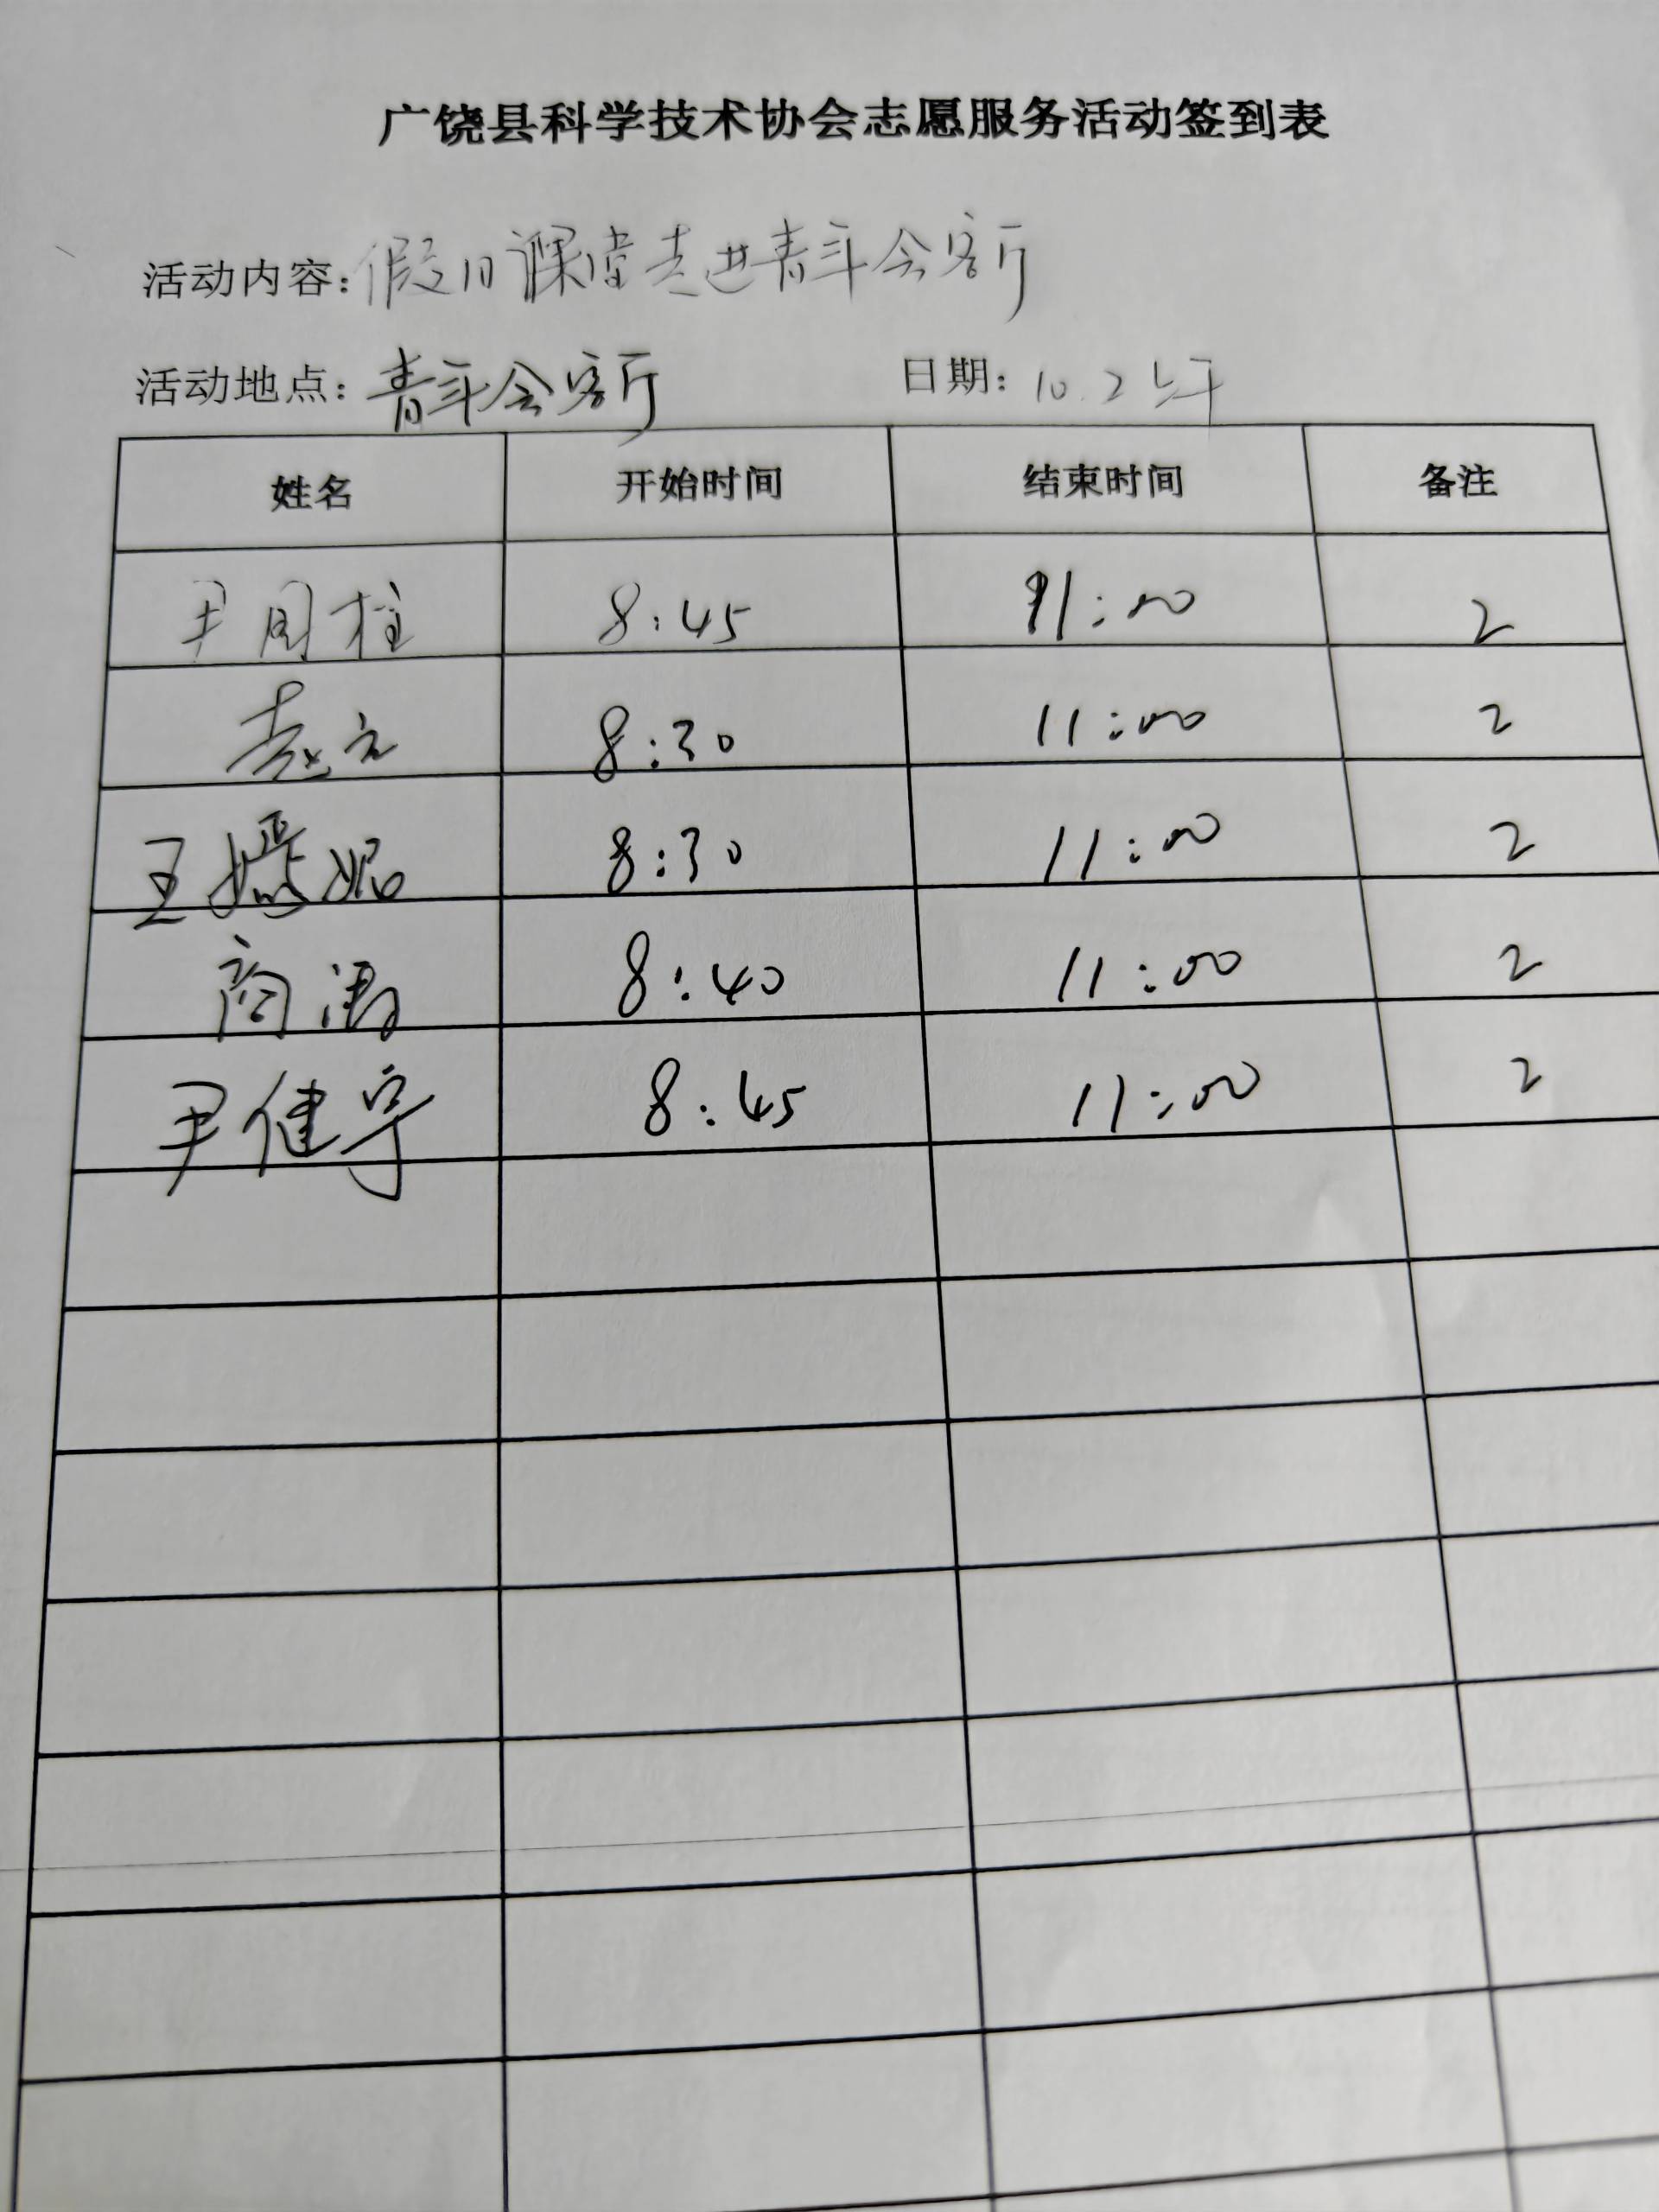 广饶县科学技术协会志愿服务活动签到表
活动内容：假日课堂走进青年会客厅
活动地点：青年会客厅 日期：10.2 上午
姓名 开始时间 结束时间 备注
尹周柱 8:45 11:00 2
袁六 8:30 11:00 2
王嫣妮 8:30 11:00 2
商涛 8:40 11:00 2
尹健宇 8:45 11:00 2